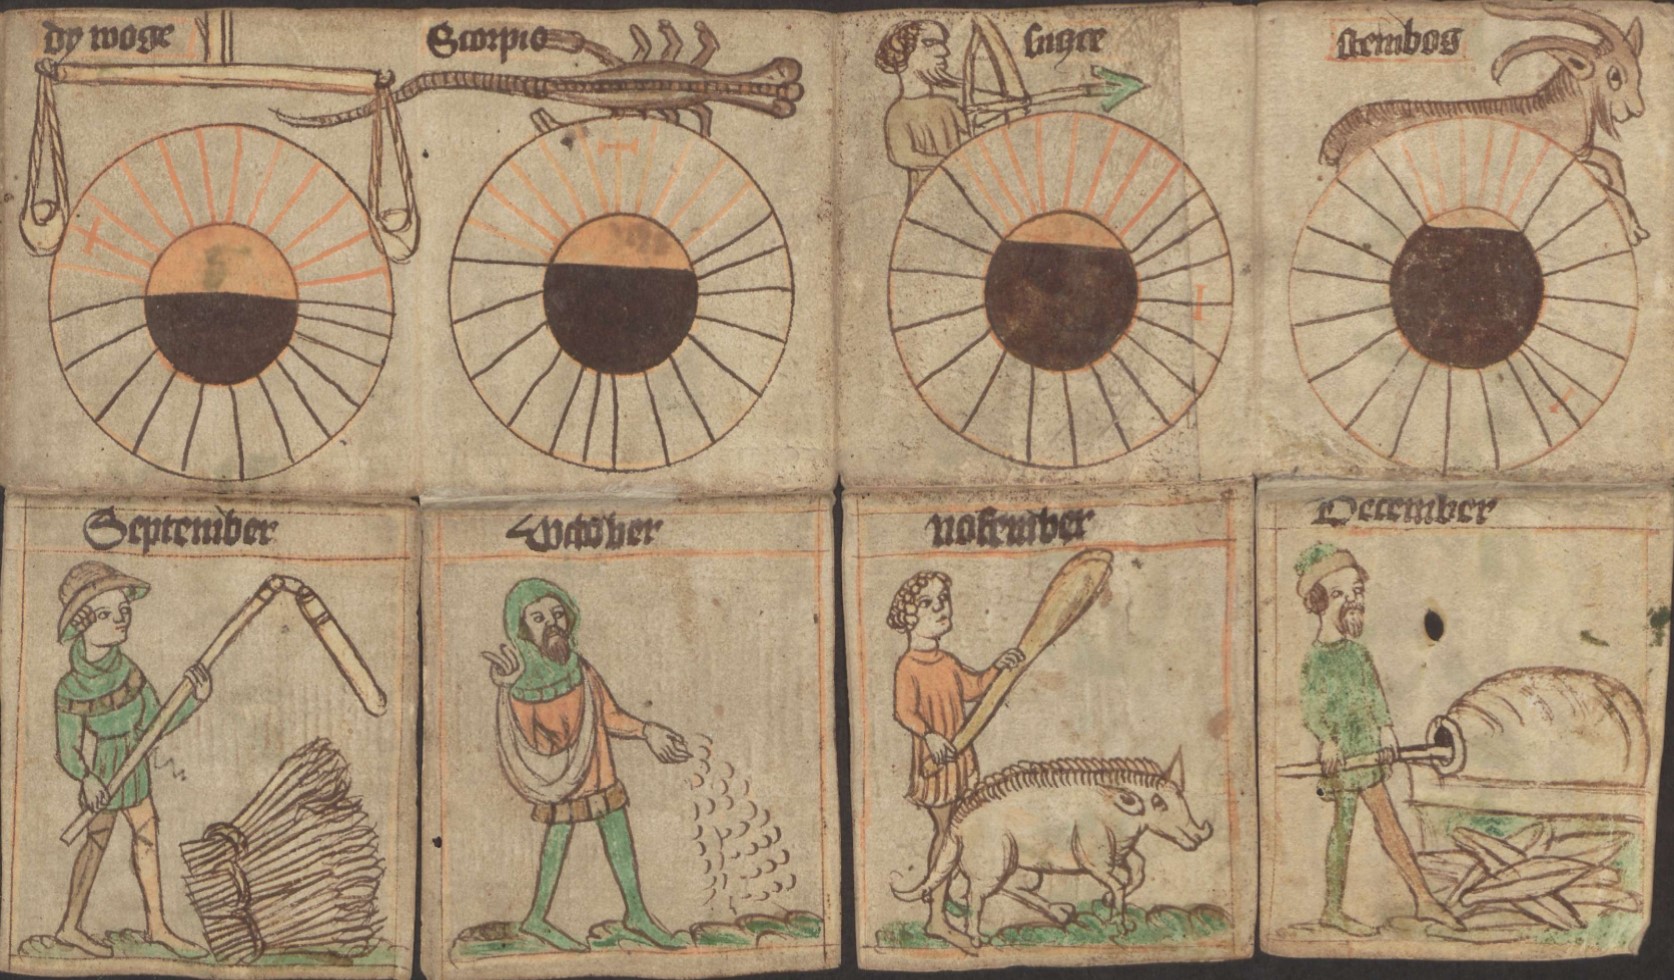 dy woge
Scorpio
stembog
September
October
nofember
December